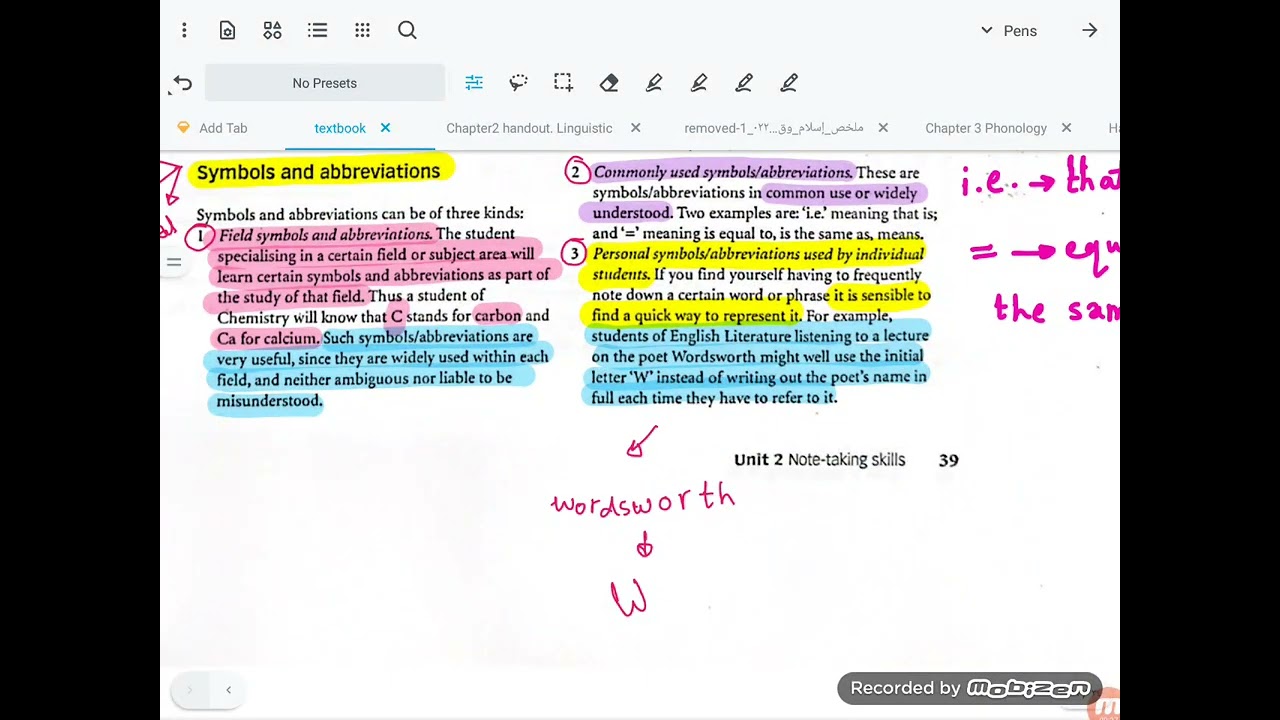 Pens
No Presets
Add Tab
textbook
Chapter2 handout. Linguistic
removed-1_٠٢٢...ملخص_إسلام_وق
Chapter 3 Phonology
Symbols and abbreviations
Symbols and abbreviations can be of three kinds:
1 Field symbols and abbreviations. The student
specialising in a certain field or subject area will
learn certain symbols and abbreviations as part of
the study of that field. Thus a student of
Chemistry will know that C stands for carbon and
Ca for calcium. Such symbols/abbreviations are
very useful, since they are widely used within each
field, and neither ambiguous nor liable to be
misunderstood.
2 Commonly used symbols/abbreviations. These are
symbols/abbreviations in common use or widely
understood. Two examples are: 'i.e.' meaning that is;
and '=' meaning is equal to, is the same as, means.
3 Personal symbols/abbreviations used by individual
students. If you find yourself having to frequently
note down a certain word or phrase it is sensible to
find a quick way to represent it. For example,
students of English Literature listening to a lecture
on the poet Wordsworth might well use the initial
letter 'W' instead of writing out the poet's name in
full each time they have to refer to it.
i.e. → that
= → equ
the sam
wordsworth
W
Unit 2 Note-taking skills 39
Recorded by mobizen